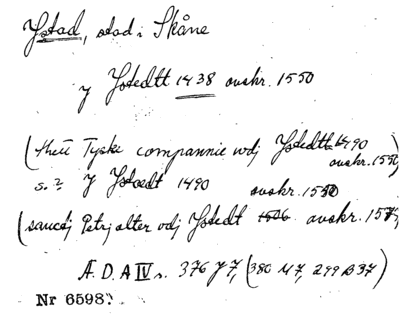 Ystad, stad i Skåne
y Ystedtt 1438 avskr. 1550
(thett Tyske compannie wdj Ystedtt 1490
avskr. 1550)
s. ? y Ystedt 1490 avskr. 1550
(sanctj Petrj alter vdj Ystedt avskr. 157
Æ. D. A IV s. 376 y 7, (380 U 7, 299 B 37)
Nr 6598.